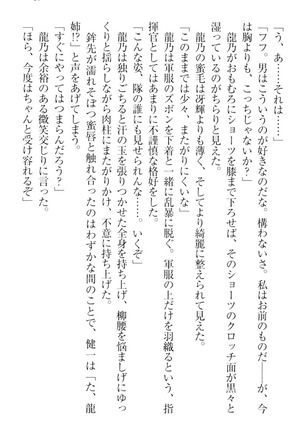 「う、あ……それは……」
「フフ。男はこういうのが好きなのだな。構わない。私はお前のものだ――が、今
は胸よりも、こっちじゃないか？」
龍乃がおもむろにショーツを膝まで下ろせば、そのショーツのクロッチ面が黒々と
湿っているのがちらりと見えた。
龍乃の蜜毛は冴輝よりも薄く、そしてより綺麗に整えられて見えた。
「このままでは少々、またがりにくいな」
龍乃は軍服のズボンを下着と一緒に乱暴に脱ぐ。軍服の上だけを羽織るという、指
揮官としてはあまりに不謹慎な格好をした。
「こんな姿、隊の誰にも見せられんな……。いくぞ」
龍乃は独りごちると汗の玉を張りつかせた全身を持ち上げ、柳腰を悩ましげにゆっ
くりと揺らしながら肉柱にまたがりかけ、不意に持ち上げた。
鉾先が濡れそぼつ蜜唇と触れ合ったのはわずかな間のことで、健一は「た、龍
姉!?」と声をあげてしまう。
「すぐにやってはつまらんだろう？」
龍乃は余裕のある微笑交じりに言った。
「ほら、今度はちゃんと受け容れるぞ」